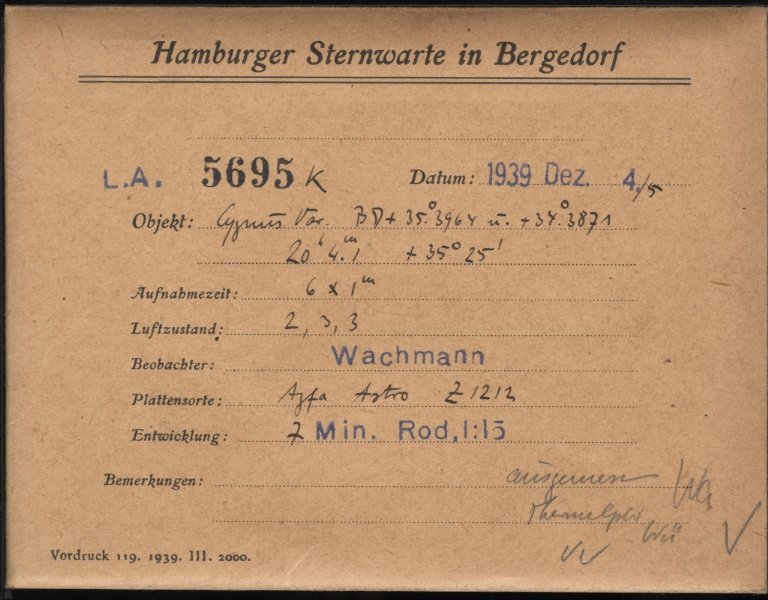 Hamburger Sternwarte in Bergedorf
L.A. 5695 K Datum: 1939 Dez. 4./5
Objekt: Cygnus Var. BD+35°3964 u. +34°3871
20ʰ 4.ᵐ1 +35° 25'
Aufnahmezeit: 6 x 1ᵐ
Luftzustand: 2, 3, 3
Beobachter: Wachmann
Plattensorte: Agfa Astro Z 1212
Entwicklung: 7 Min. Rod, 1:15
Bemerkungen: ausgemessen
Vordruck 119. 1939. III. 2000.